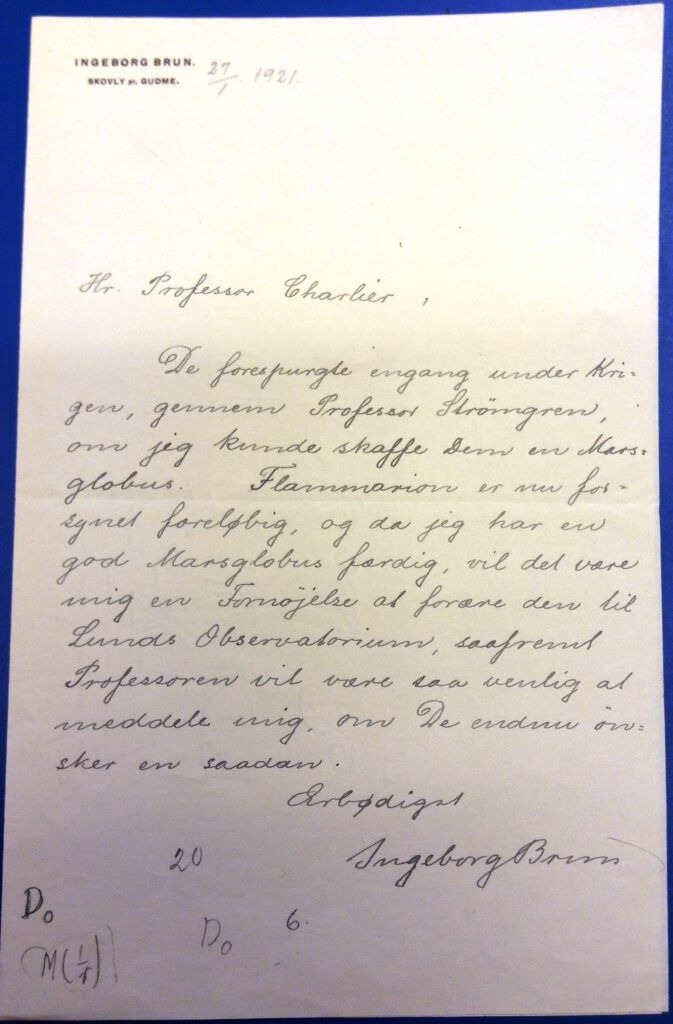 INGEBORG BRUN.
SKOVLY pr. GUDME.
27/1 1921.
Hr. Professor Charlier,
De forespurgte engang under Kri-
gen, gennem Professor Strömgren,
om jeg kunde skaffe Dem en Mars-
globus. Flammarion er nu for-
synet foreløbig, og da jeg har en
god Marsglobus færdig, vil det være
mig en Fornøjelse at forære den til
Lunds Observatorium, saafremt
Professoren vil være saa venlig at
meddele mig, om De endnu ön-
sker en saadan.
Ærbødigst
Ingeborg Brun
20
D₀
D₀ 6.